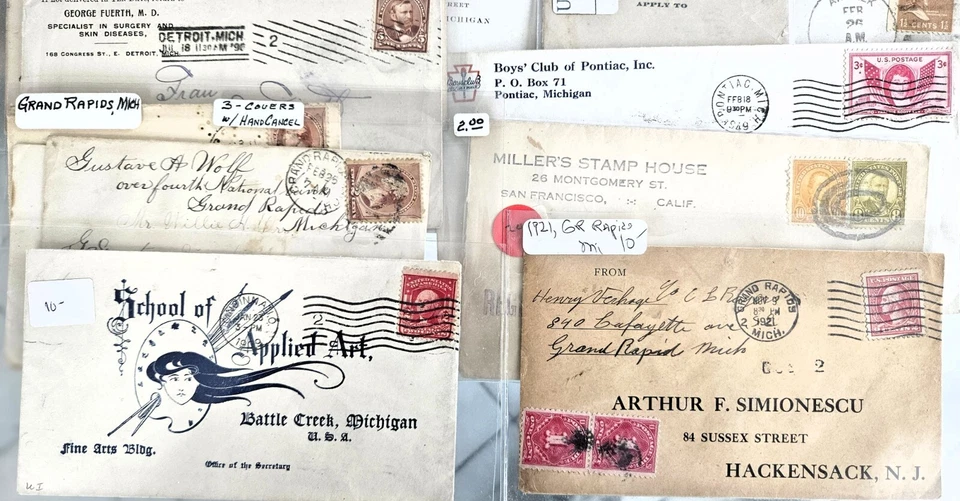 GEORGE FUERTH, M. D.
SPECIALIST IN SURGERY AND
SKIN DISEASES,
168 CONGRESS ST., E. DETROIT, MICH.
DETROIT, MICH
2
5
MICHIGAN
APPLY TO
FEB
26
A.M.
CENTS
Boys' Club of Pontiac, Inc.
P. O. Box 71
Pontiac, Michigan
PONTIAC, MICH.
FEB 18
3¢ U.S. POSTAGE 3¢
2.00
GRAND RAPIDS, MICH
3-COVERS
W/ HANDCANCEL
Gustave A Wolf
over fourth National bank
Grand Rapids
Michigan
GRAND RAPIDS
FEB 25
MILLER'S STAMP HOUSE
26 MONTGOMERY ST.
SAN FRANCISCO, CALIF.
1921, GR RAPIDS
MI 10-
10-
School of
Applied Art,
Battle Creek, Michigan
U. S. A.
Fine Arts Bldg.
Office of the Secretary
JAN 23
3-PM
2
FROM
Henry
840 Lafayette ave
Grand Rapid Mich
GRAND RAPIDS
1921
MICH.
2
ARTHUR F. SIMIONESCU
84 SUSSEX STREET
HACKENSACK, N. J.